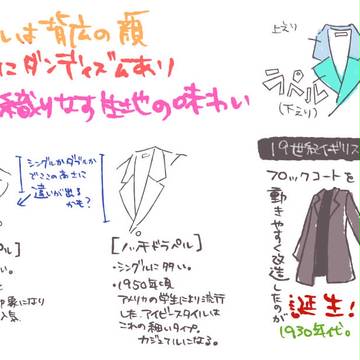 いは背広の顔
にダンディズムあり
織りなす生地の味わい
上えり
ラペル
(下えり)
シングルかダブルか
でここの長さに
違いが出る
かも?
19世紀イギリス
フロックコートを
動きやすく改造したのが
誕生!
1930年代。
ペル]
い。
象になり
人気
[ノッチドラペル]
・シングルに多い。
・1950年頃
アメリカの学生により流行
した、アイビースタイルは
これの細いタイプ。
カジュアルになる。